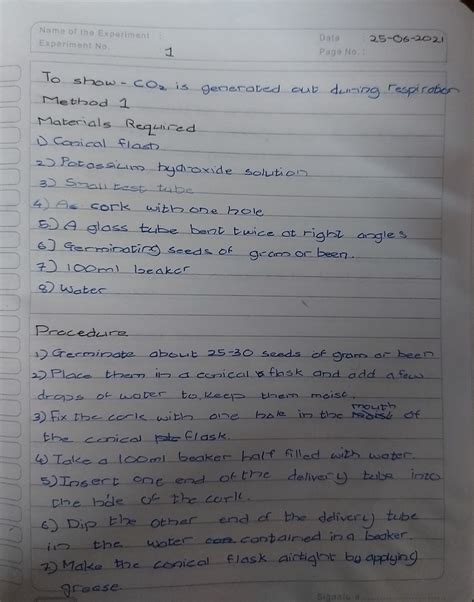 Name of the Experiment :
Date 25-06-2021
Experiment No. 1
Page No. :
To show - CO2 is generated out during respiration
Method 1
Materials Required
1) Conical flash
2) Potassium hydroxide solution
3) Small test tube
4) As cork with one hole
5) A glass tube bent twice at right angles
6) Germinating seeds of gram or been.
7) 100ml beaker
8) Water
Procedure
1) Germinate about 25-30 seeds of gram or been
2) Place them in a conical flask and add a few
drops of water to keep them moist.
3) Fix the cork with one hole in the mouth of
the conical flask.
4) Take a 100ml beaker half filled with water.
5) Insert one end of the delivery tube into
the hole of the cork.
6) Dip the other end of the delivery tube
in the water contained in a beaker.
7) Make the conical flask airtight by applying
grease.